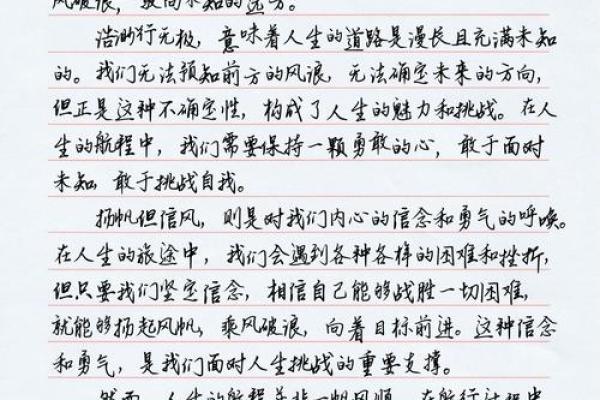 风破浪，驶向未知的远方。
浩渺行无极，意味着人生的道路是漫长且充满未知
的。我们无法预知前方的风浪，无法确定未来的方向，
但正是这种不确定性，构成了人生的魅力和挑战。在人
生的航程中，我们需要保持一颗勇敢的心，敢于面对
未知，敢于挑战自我。
扬帆但信风，则是对我们内心的信念和勇气的呼唤。
在人生的旅途中，我们会遇到各种各样的困难和挫折，
但只要我们坚定信念，相信自己能够战胜一切困难，
就能够扬起风帆，乘风破浪，向着目标前进。这种信念
和勇气，是我们面对人生挑战的重要支撑。
然而，人生的航程并非一帆风顺。在航行过程中